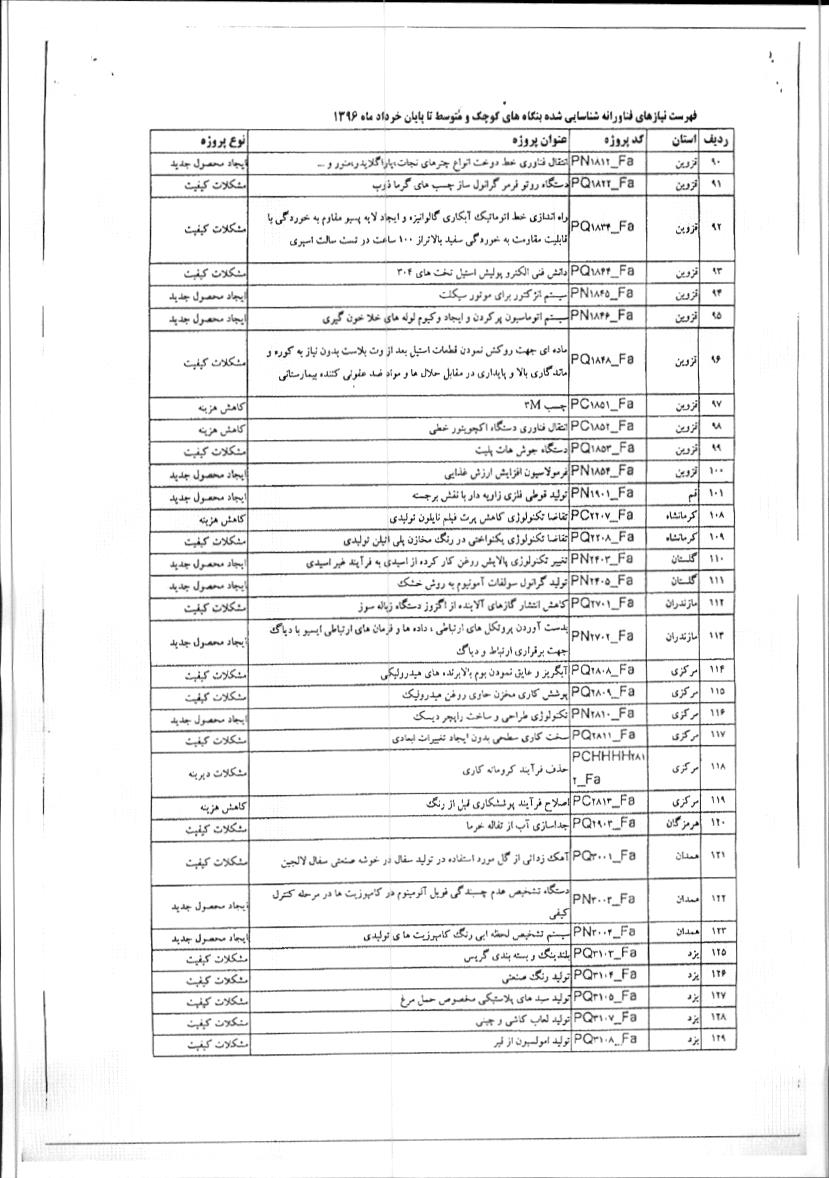 فهرست نیازهای فناورانه شناسایی شده بنگاه های کوچک و متوسط تا پایان خرداد ماه ۱۳۹۶
ردیف استان کد پروژه عنوان پروژه نوع پروژه
۹۰ قزوین PN۱۸۱۲_Fa انتقال فناوری خط دوخت انواع چترهای نجات،پاراگلایدر،منور و ... ایجاد محصول جدید
۹۱ قزوین PQ۱۸۲۲_Fa دستگاه روتو فرمر گرانول ساز چسب های گرما ذوب مشکلات کیفیت
۹۲ قزوین PQ۱۸۳۴_Fa راه اندازی خط اتوماتیک آبکاری گالوانیزه و ایجاد لایه پسیو مقاوم به خوردگی با
قابلیت مقاومت به خوردگی سفید بالاتراز ۱۰۰ ساعت در تست سالت اسپری مشکلات کیفیت
۹۳ قزوین PQ۱۸۴۴_Fa دانش فنی الکترو پولیش استیل تخت های ۳۰۴ مشکلات کیفیت
۹۴ قزوین PN۱۸۴۵_Fa سیستم انژکتور برای موتور سیکلت ایجاد محصول جدید
۹۵ قزوین PN۱۸۴۶_Fa سیستم اتوماسیون پرکردن و ایجاد وکیوم لوله های خلا خون گیری ایجاد محصول جدید
۹۶ قزوین PQ۱۸۴۸_Fa ماده ای جهت روکش نمودن قطعات استیل بعد از وت بلاست بدون نیاز به کوره و
ماندگاری بالا و پایداری در مقابل حلال ها و مواد ضد عفونی کننده بیمارستانی مشکلات کیفیت
۹۷ قزوین PC۱۸۵۱_Fa چسب ۳M کاهش هزینه
۹۸ قزوین PC۱۸۵۲_Fa انتقال فناوری دستگاه اکچویتور خطی کاهش هزینه
۹۹ قزوین PQ۱۸۵۳_Fa دستگاه جوش هات پلیت مشکلات کیفیت
۱۰۰ قزوین PN۱۸۵۴_Fa فرمولاسیون افزایش ارزش غذایی ایجاد محصول جدید
۱۰۱ قم PN۱۹۰۱_Fa تولید قوطی فلزی زاویه دار با نقش برجسته ایجاد محصول جدید
۱۰۸ کرمانشاه PC۲۲۰۷_Fa تقاضا تکنولوژی کاهش پرت فیلم نایلون تولیدی کاهش هزینه
۱۰۹ کرمانشاه PQ۲۲۰۸_Fa تقاضا تکنولوژی یکنواختی در رنگ مخازن پلی اتیلن تولیدی مشکلات کیفیت
۱۱۰ گلستان PN۲۴۰۳_Fa تغییر تکنولوژی پالایش روغن کار کرده از اسیدی به فرآیند غیر اسیدی ایجاد محصول جدید
۱۱۱ گلستان PN۲۴۰۵_Fa تولید گرانول سولفات آمونیوم به روش خشک ایجاد محصول جدید
۱۱۲ مازندران PQ۲۷۰۱_Fa کاهش انتشار گازهای آلاینده از اگزوز دستگاه زباله سوز مشکلات کیفیت
۱۱۳ مازندران PN۲۷۰۲_Fa بدست آوردن پروتکل های ارتباطی ، داده ها و فرمان های ارتباطی ایسیو با دیاگ
جهت برقراری ارتباط و دیاگ ایجاد محصول جدید
۱۱۴ مرکزی PQ۲۸۰۸_Fa آبگریز و عایق نمودن بوم بالابرنده های هیدرولیکی مشکلات کیفیت
۱۱۵ مرکزی PQ۲۸۰۹_Fa پوشش کاری مخزن حاوی روغن هیدرولیک مشکلات کیفیت
۱۱۶ مرکزی PN۲۸۱۰_Fa تکنولوژی طراحی و ساخت راپچر دیسک ایجاد محصول جدید
۱۱۷ مرکزی PQ۲۸۱۱_Fa سخت کاری سطحی بدون ایجاد تغییرات ابعادی مشکلات کیفیت
۱۱۸ مرکزی PCHHHH۲۸۱
۲_Fa حذف فرآیند کروماته کاری مشکلات دیرینه
۱۱۹ مرکزی PC۲۸۱۳_Fa اصلاح فرآیند پوششکاری قبل از رنگ کاهش هزینه
۱۲۰ هرمزگان PQ۲۹۰۳_Fa جداسازی آب از تفاله خرما مشکلات کیفیت
۱۲۱ همدان PQ۳۰۰۱_Fa آهک زدائی از گل مورد استفاده در تولید سفال در خوشه صنعتی سفال لالجین مشکلات کیفیت
۱۲۲ همدان PN۳۰۰۳_Fa دستگاه تشخیص عدم چسبندگی فویل آلومینیوم در کامپوزیت ها در مرحله کنترل
کیفی ایجاد محصول جدید
۱۲۳ همدان PN۳۰۰۴_Fa سیستم تشخیص لحظه ایی رنگ کامپوزیت های تولیدی ایجاد محصول جدید
۱۲۵ یزد PQ۳۱۰۳_Fa بلندینگ و بسته بندی گریس مشکلات کیفیت
۱۲۶ یزد PQ۳۱۰۴_Fa تولید رنگ صنعتی مشکلات کیفیت
۱۲۷ یزد PQ۳۱۰۵_Fa تولید سبد های پلاستیکی مخصوص حمل مرغ مشکلات کیفیت
۱۲۸ یزد PQ۳۱۰۷_Fa تولید لعاب کاشی و چینی مشکلات کیفیت
۱۲۹ یزد PQ۳۱۰۸_Fa تولید امولسیون از قیر مشکلات کیفیت